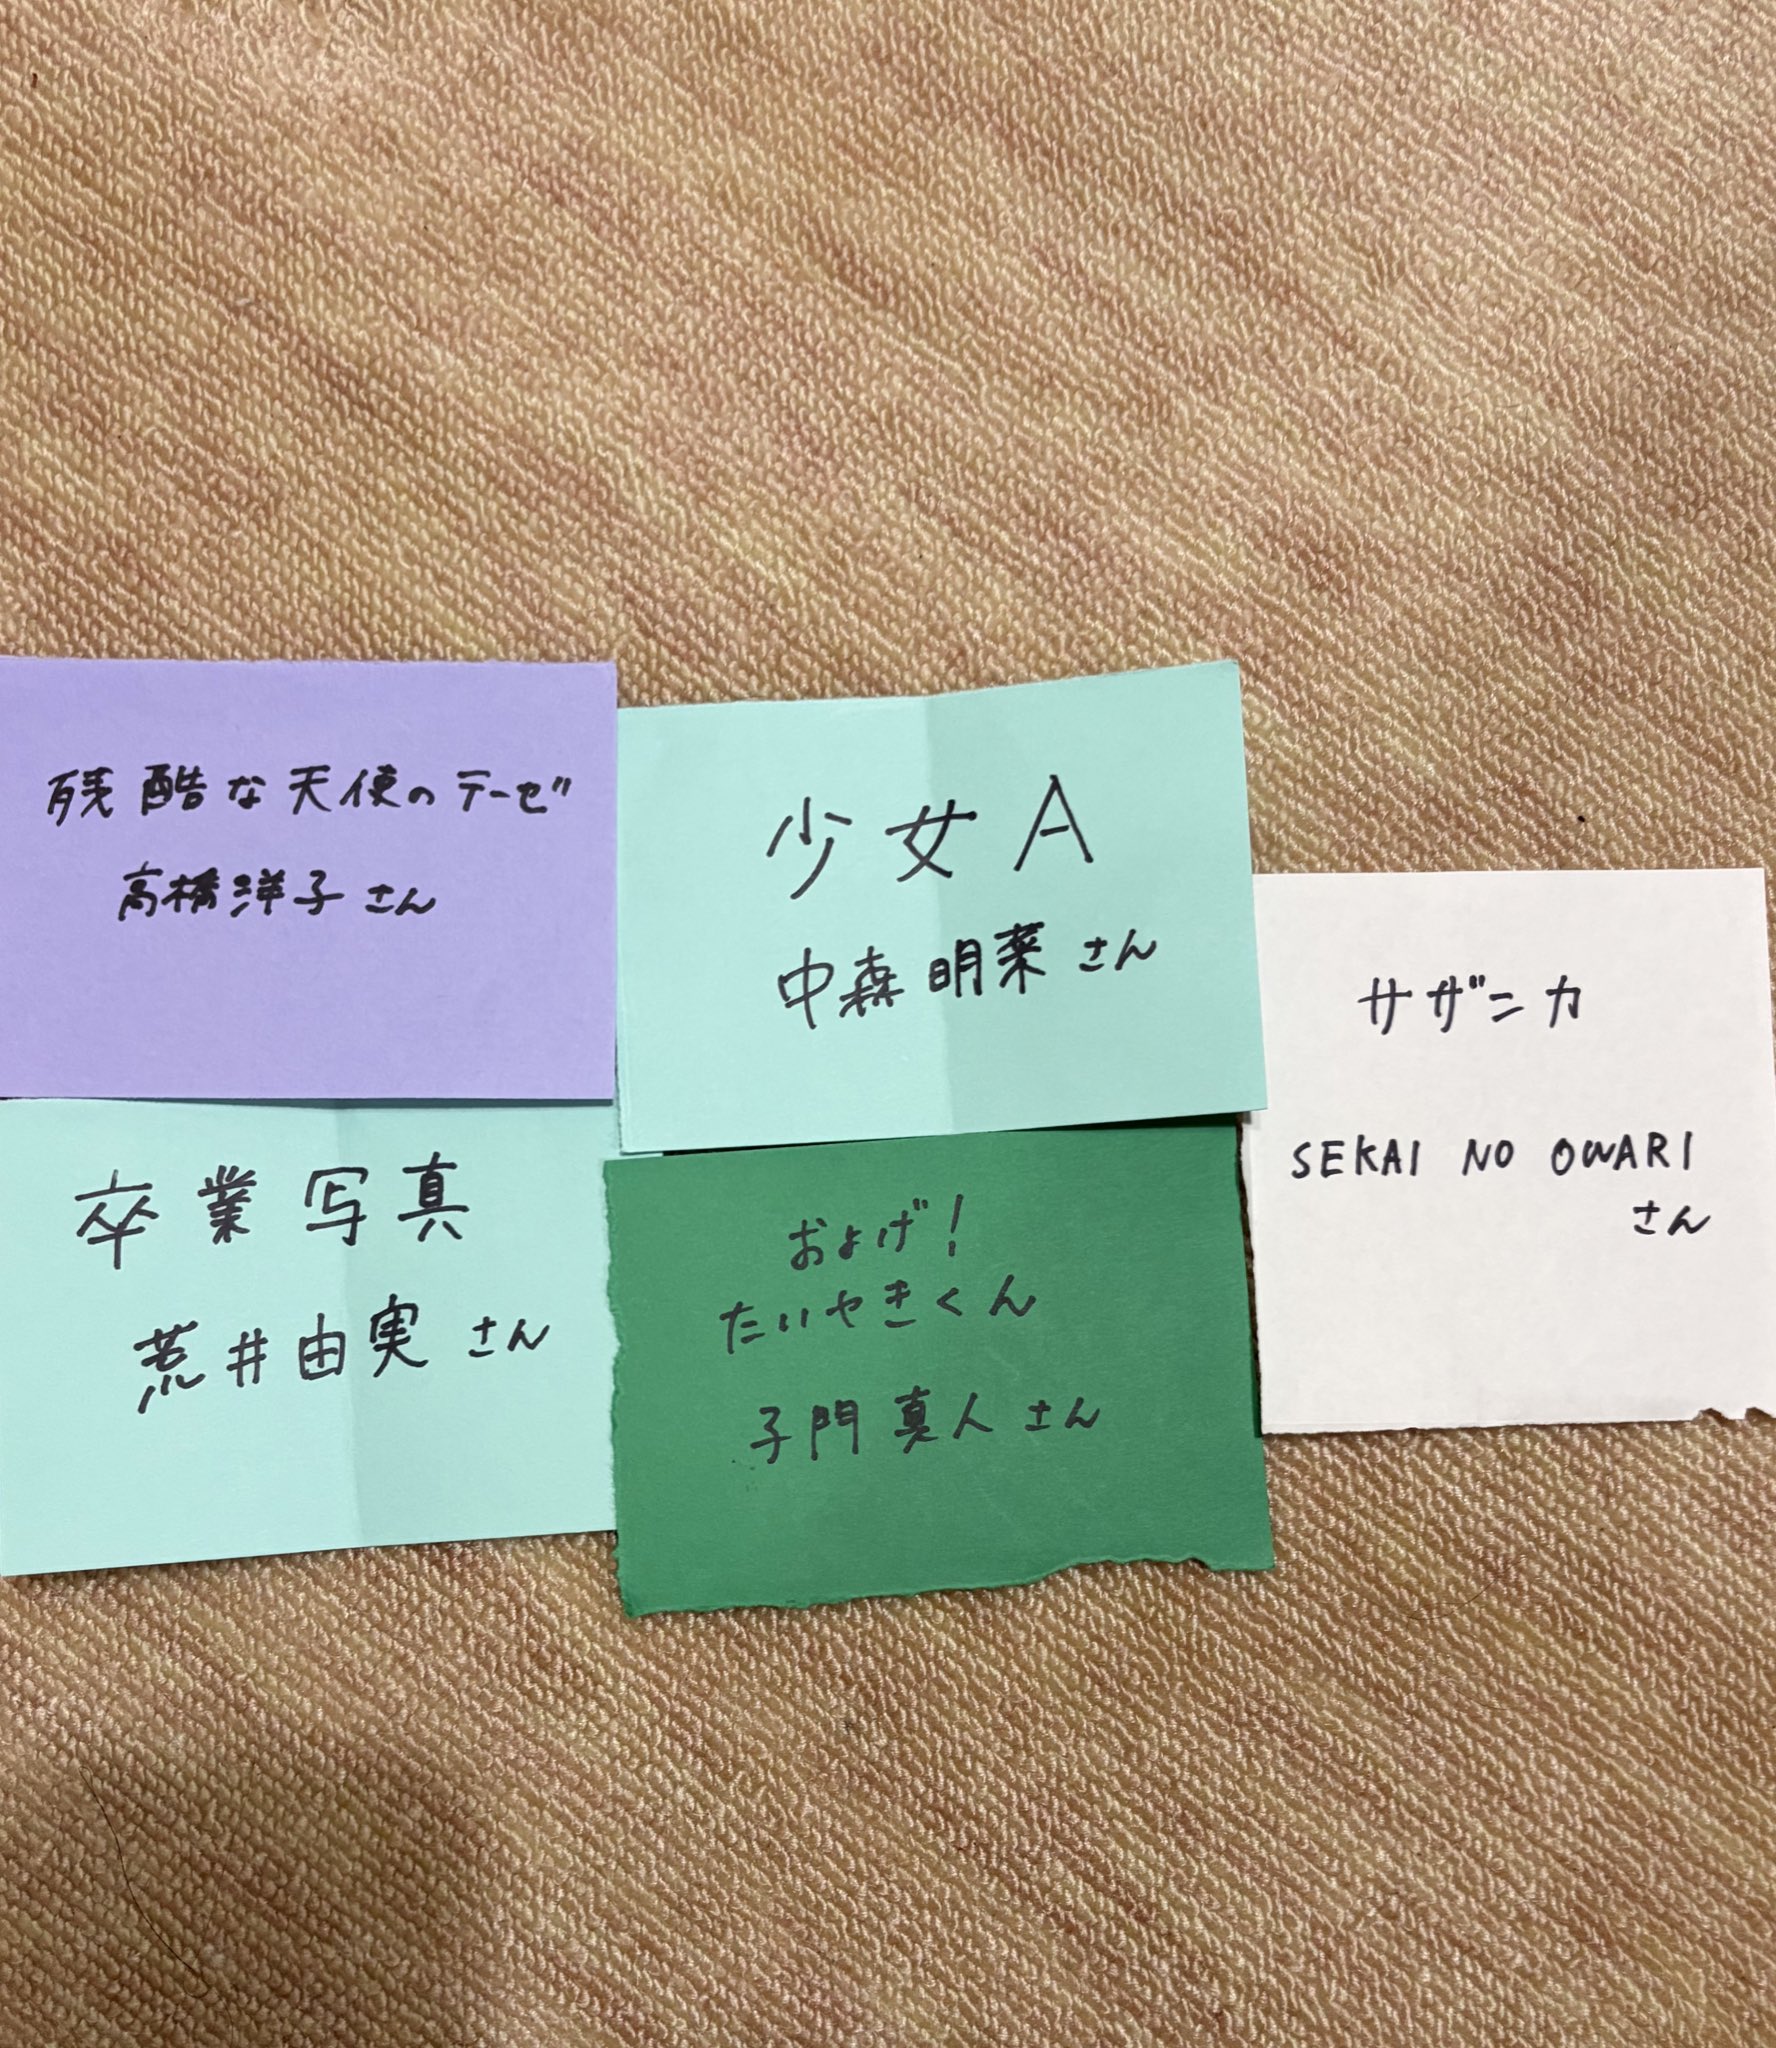 残酷な天使のテーゼ
高橋洋子さん
少女A
中森明菜さん
サザンカ
SEKAI NO OWARI
さん
卒業写真
荒井由実さん
およげ!
たいやきくん
子門真人さん